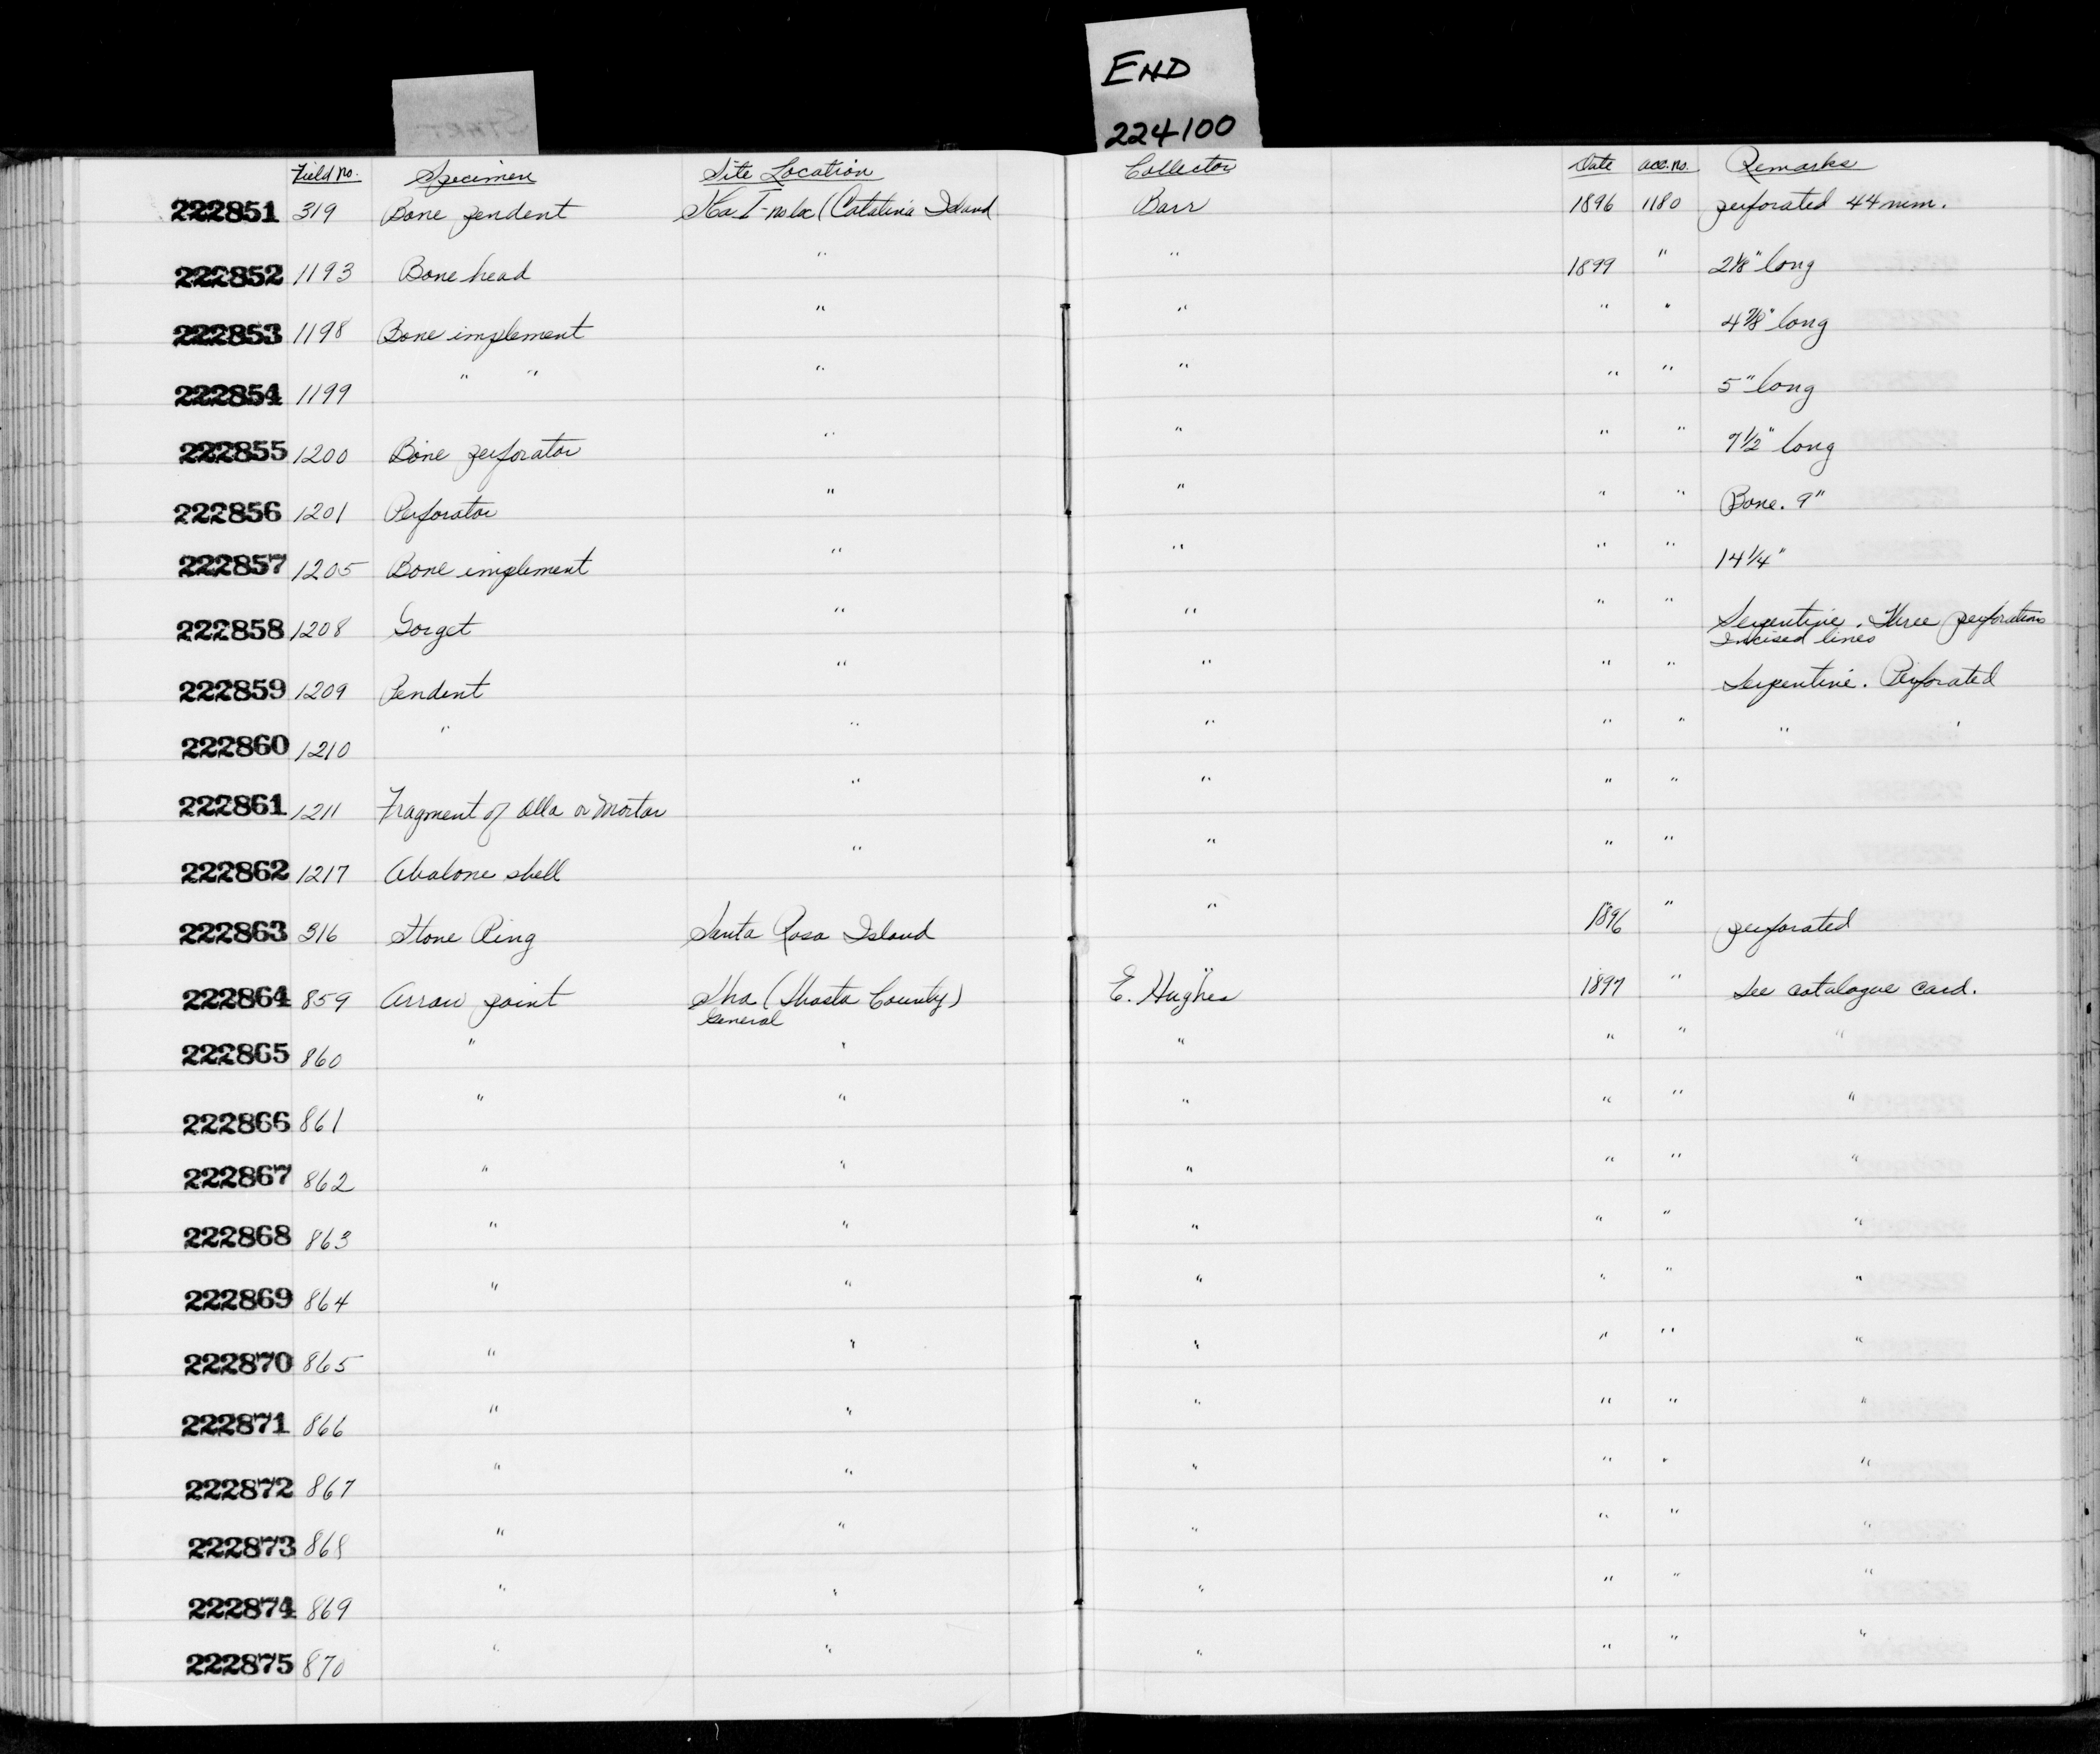 END
224100
START
Field no. Specimen Site Location Collector Date acc. no. Remarks
222851 319 Bone pendent SCa I - no loc (Catalina Island Barr 1896 1180 perforated 44 mm.
222852 1193 Bone head " " 1899 " 2 1/8" long
222853 1198 Bone implement " " " " 4 7/8" long
222854 1199 " " " " " " 5" long
222855 1200 Bone perforator " " " " 7 1/2" long
222856 1201 Perforator " " " " Bone. 9"
222857 1205 Bone implement " " " " 14 1/4"
222858 1208 Gorget " " " " Serpentine. Three perforations
Incised lines
222859 1209 Pendent " " " " Serpentine. Perforated
222860 1210 " " " " " " "
222861 1211 Fragment of olla or mortar " " " "
222862 1217 Abalone shell " " " "
222863 316 Stone Ring Santa Rosa Island " 1896 " perforated
222864 859 Arrow point Sha (Shasta County) E. Hughes 1897 " See catalogue card.
General
222865 860 " " " " " "
222866 861 " " " " " "
222867 862 " " " " " "
222868 863 " " " " " "
222869 864 " " " " " "
222870 865 " " " " " "
222871 866 " " " " " "
222872 867 " " " " " "
222873 868 " " " " " "
222874 869 " " " " " "
222875 870 " " " " " "